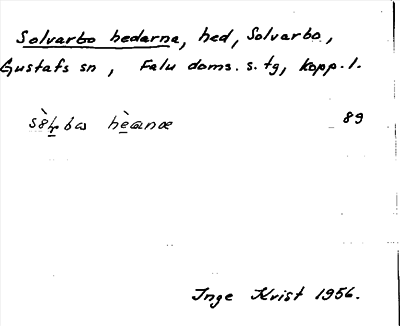 Solvarbo hedarna, hed, Solvarbo,
Gustafs sn, Falu doms. s. tg, kopp. l.
89
Inge Kvist 1956.